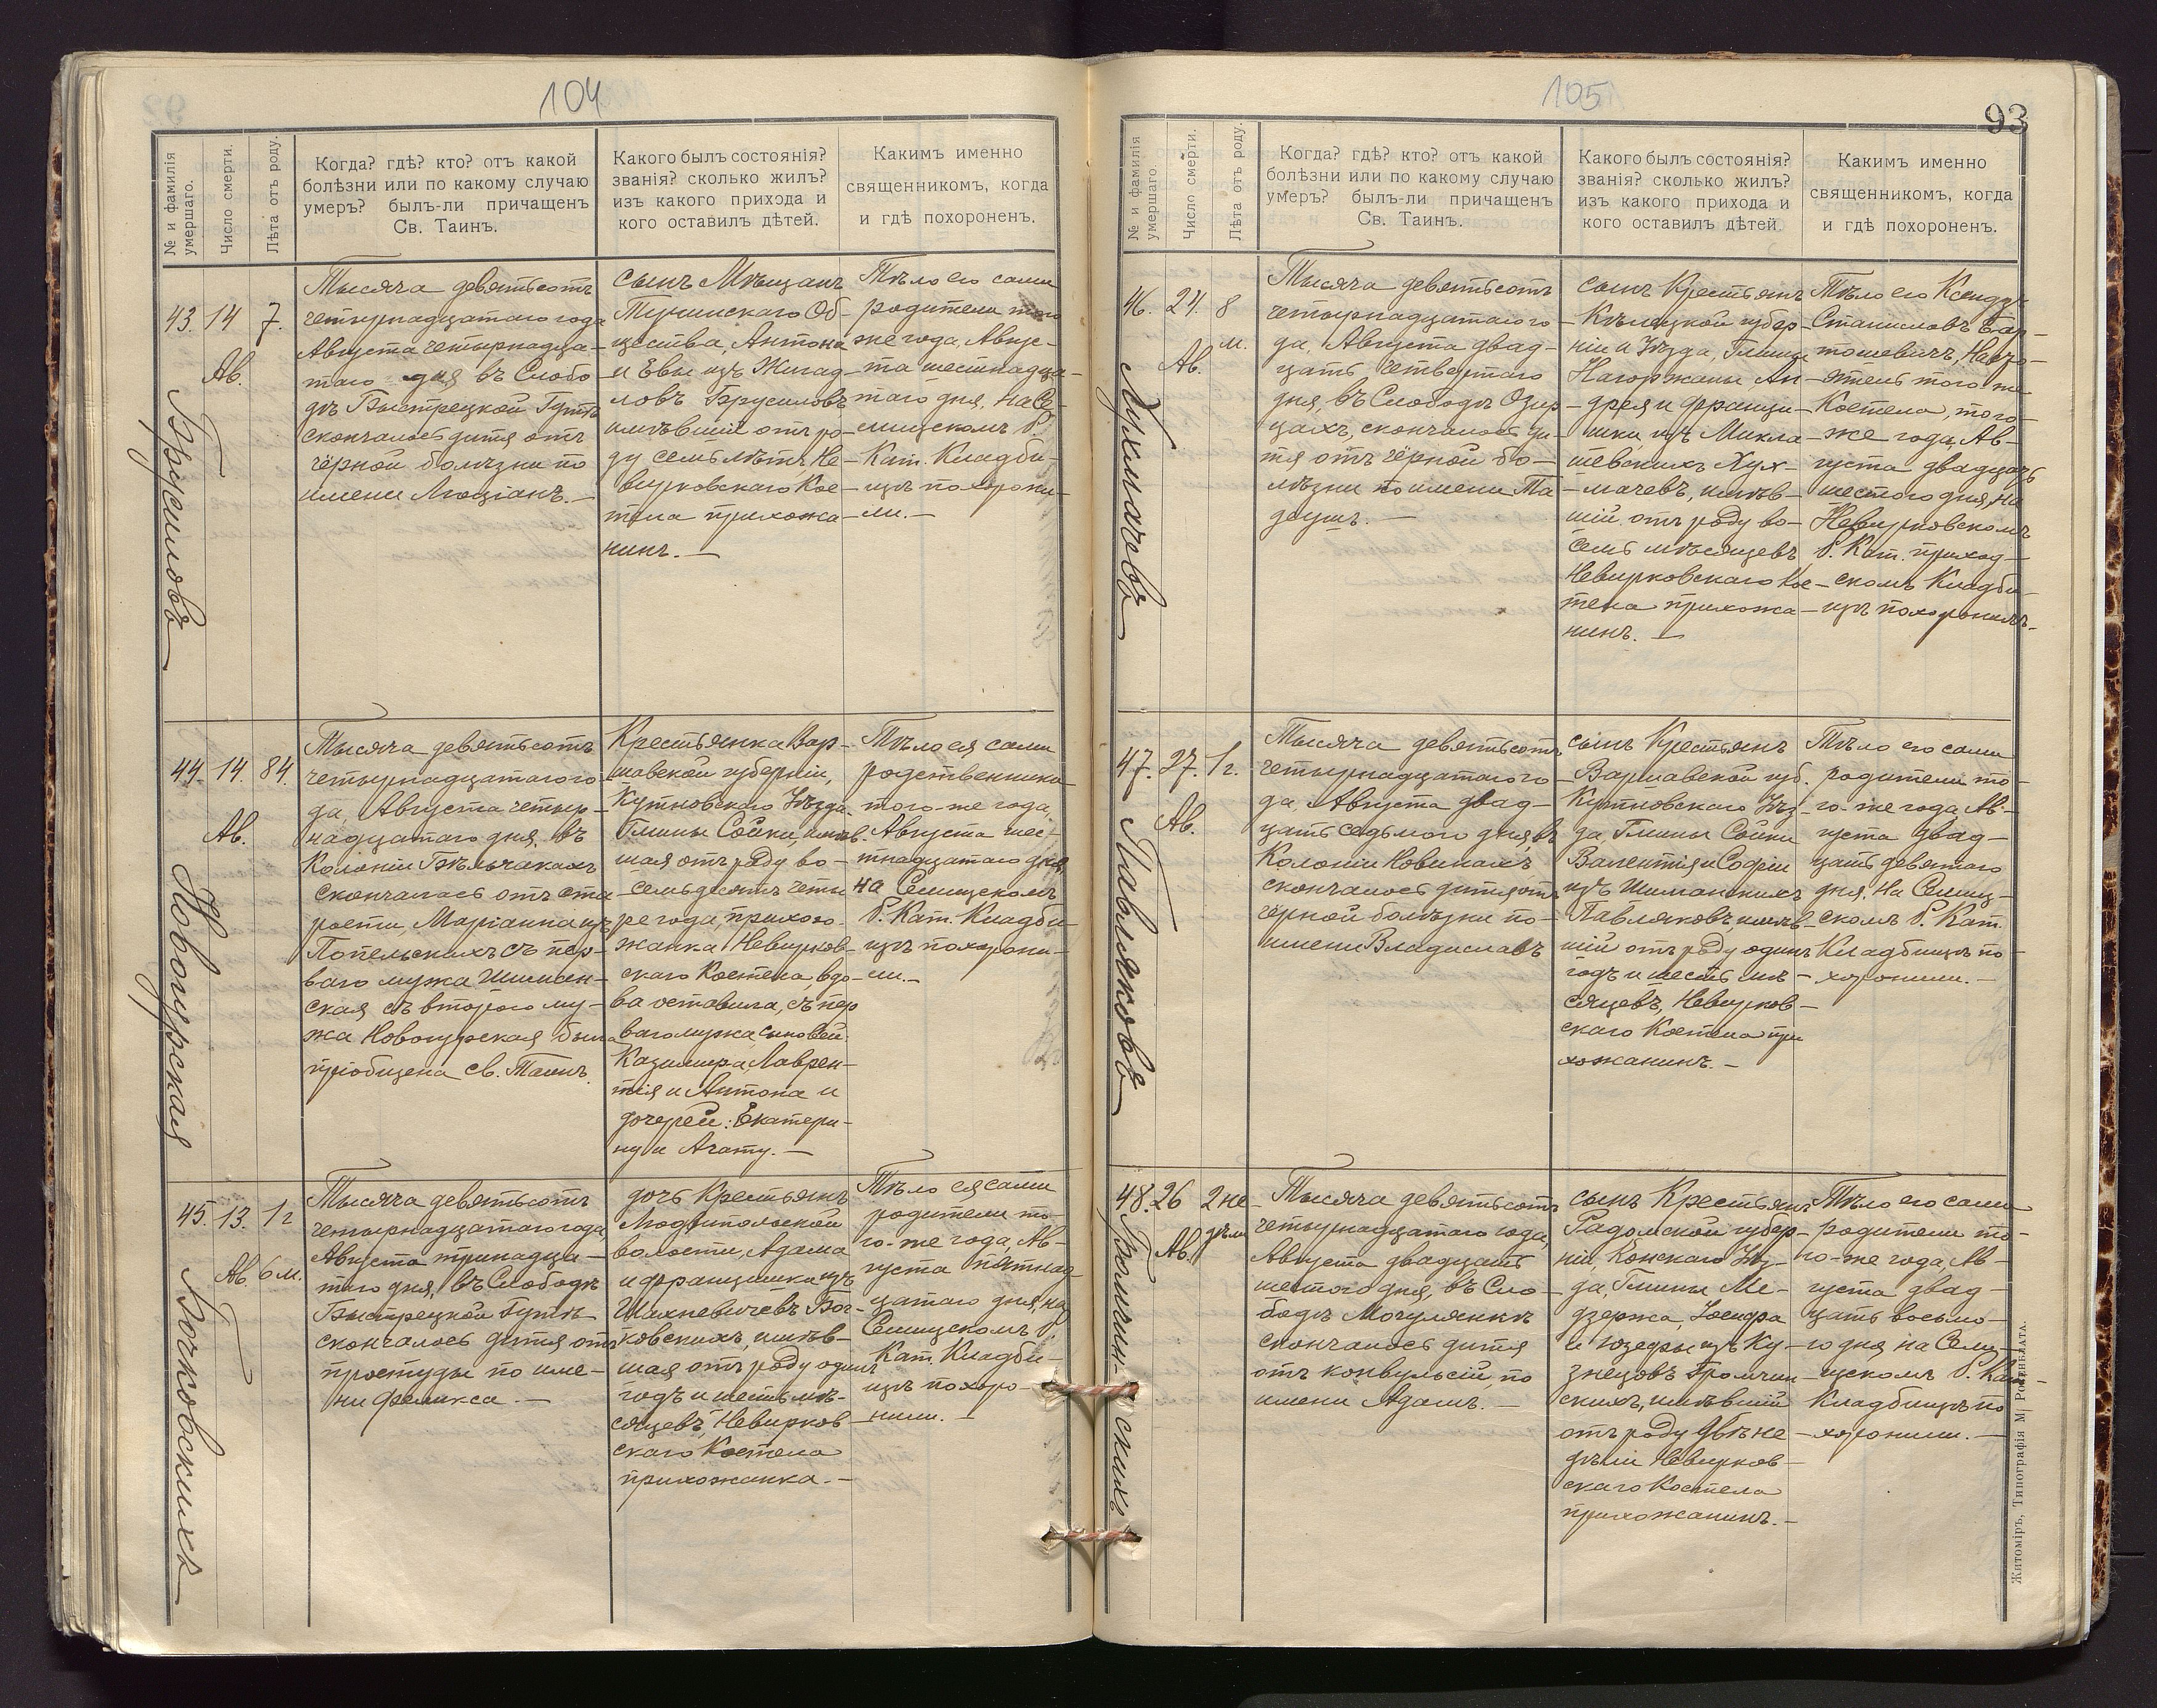 104
№ и фамилія умершаго.
Число смерти.
Лѣта отъ роду.
Когда? гдѣ? кто? отъ какой
болѣзни или по какому случаю
умеръ? былъ-ли причащенъ
Св. Таинъ.
Какого былъ состоянія?
званія? сколько жилъ?
изъ какого прихода и
кого оставилъ дѣтей.
Какимъ именно
священникомъ, когда
и гдѣ похороненъ.
43.
14
Ав.
7.
Брусиловъ
Тысяча девятьсотъ
четырнадцатаго года
Августа четырнадца-
таго дня въ Слобо
дѣ Быстрецкой Гутѣ
скончалось дитя отъ
чёрной болѣзни по
имени Люціанъ. —
сынъ Мѣщанъ
Тучинскаго Об-
щества, Антона
и Евы изъ Жигад-
ловъ Брусиловъ
имѣвшій отъ ро-
ду семь лѣтъ Не-
вирковскаго Кос-
тела прихожа-
нинъ. —
Тѣло его сами
родители того
же года, Авгус-
та шестнадца-
таго дня, на Се-
лищскомъ Р.
Кат. Кладби-
щѣ похорони-
ли. —
44.
14.
Ав.
84.
Новогурская
Тысяча девятьсотъ
четырнадцатаго го-
да, Августа четыр-
надцатаго дня, въ
Колоніи Бѣльчакахъ
скончалась отъ ста
рости, Маріанна изъ
Попельскихъ съ пер-
ваго мужа Шиман-
ская съ второго му-
жа Новогурская была
пріобщена св. Таинъ.
Крестьянка Вар-
шавской губерніи,
Кутновскаго Уѣзда
Гмины Сойки, имѣв-
шая отъ роду во-
семьдесятъ четы
ре года, прихо-
жанка Невирков-
скаго Костела, вдо-
ва оставила, съ пер
ваго мужа сыновей:
Казимира, Лаврен-
тія и Антона и
дочерей: Екатери-
ну и Агату. —
Тѣло ея сами
родственники
того-же года,
Августа шес-
тнадцатаго дня,
на Селищскомъ
Р. Кат. Кладби-
щѣ похорони-
ли. —
45.
13.
Ав.
1 г
6 м.
Бочковскихъ
Тысяча девятьсотъ
четырнадцатаго года,
Августа тринадца-
таго дня, въ Слободѣ
Быстрецкой Гутѣ
скончалось дитя отъ
простуды по име-
ни Феликса. —
дочь Крестьянъ
Людвипольской
волости, Адама
и Францишки изъ
Шахневичевъ Боч-
ковскихъ, имѣв-
шая отъ роду одинъ
годъ и шесть мѣ-
сяцевъ, Невирков
скаго Костела
прихожанка. —
Тѣло ея сами
родители то-
го-же года, Ав-
густа пятнад-
цатаго дня, на
Селищскомъ Р.
Кат. Кладби-
щѣ похоро-
нили. —
105
93
№ и фамилія умершаго.
Число смерти.
Лѣта отъ роду.
Когда? гдѣ? кто? отъ какой
болѣзни или по какому случаю
умеръ? былъ-ли причащенъ
Св. Таинъ.
Какого былъ состоянія?
званія? сколько жилъ?
изъ какого прихода и
кого оставилъ дѣтей.
Какимъ именно
священникомъ, когда
и гдѣ похороненъ.
46.
24.
Ав.
8
м.
Кухмачевъ
Тысяча девятьсотъ
четырнадцатаго го-
да, Августа двад-
цать четвертаго
дня, въ Слободѣ Озир-
цахъ, скончалось ди-
тя отъ чёрной бо-
лѣзни по имени Та
деушъ. —
сынъ Крестьянъ
Кѣлецкой губер-
ніи и Уѣзда, Гмины
Нагоржаны Ан-
дрея и Францы-
шки, изъ Микла-
шевскихъ Кух-
мачевъ, имѣв-
шій отъ роду во-
семь мѣсяцевъ,
Невирковскаго Кос-
тела прихожа-
нинъ. —
Тѣло его Ксендзъ
Станиславъ Бар-
тошевичъ, Насто-
ятель того же
Костела, того-
же года, Ав-
густа двадцать
шестого дня, на
Невирковскомъ
Р. Кат. приход-
скомъ Кладби-
щѣ похоронилъ. —
47.
27.
Ав.
1 г.
Павляковъ
Тысяча девятьсотъ
четырнадцатаго го-
да, Августа двад-
цать седьмого дня, въ
Колоніи Новинахъ
скончалось дитя отъ
чёрной болѣзни по-
имени Владиславъ
сынъ Крестьянъ
Варшавской губ.
Кутновскаго Уѣз-
да, Гмины Сойки
Валентія и Софіи
изъ Шиманскихъ
Павляковъ, имѣв-
шій отъ роду одинъ
годъ и шесть мѣ-
сяцевъ, Невирков-
скаго Костела при
хожанинъ. —
Тѣло его сами
родители то-
го-же года, Ав-
густа двад-
цать девятаго
дня, на Селищ-
скомъ Р. Кат.
Кладбищѣ по-
хоронили. —
48.
26
Ав.
2 не
дѣли
Громчин-скихъ
Тысяча девятьсотъ
четырнадцатаго года,
Августа двадцать
шестого дня, въ Сло-
бодѣ Могулянкѣ
скончалось дитя
отъ конвульсій, по
имени Адамъ. —
сынъ Крестьянъ
Радомской губер-
ніи, Конскаго Уѣз-
да, Гмины Ме-
дзержа, Іосифа
и Юзефы изъ Ку-
знецовъ Громчин
скихъ, имѣвшій
отъ роду двѣ не-
дѣли Невирков-
скаго Костела
прихожанинъ. —
Тѣло его сами
родители то-
го-же года, Ав-
густа двад-
цать восьмо-
го дня, на Селищ-
скомъ Р. Кат.
Кладбищѣ по-
хоронили. —
Житоміръ, Типографія М. Ротенблата.